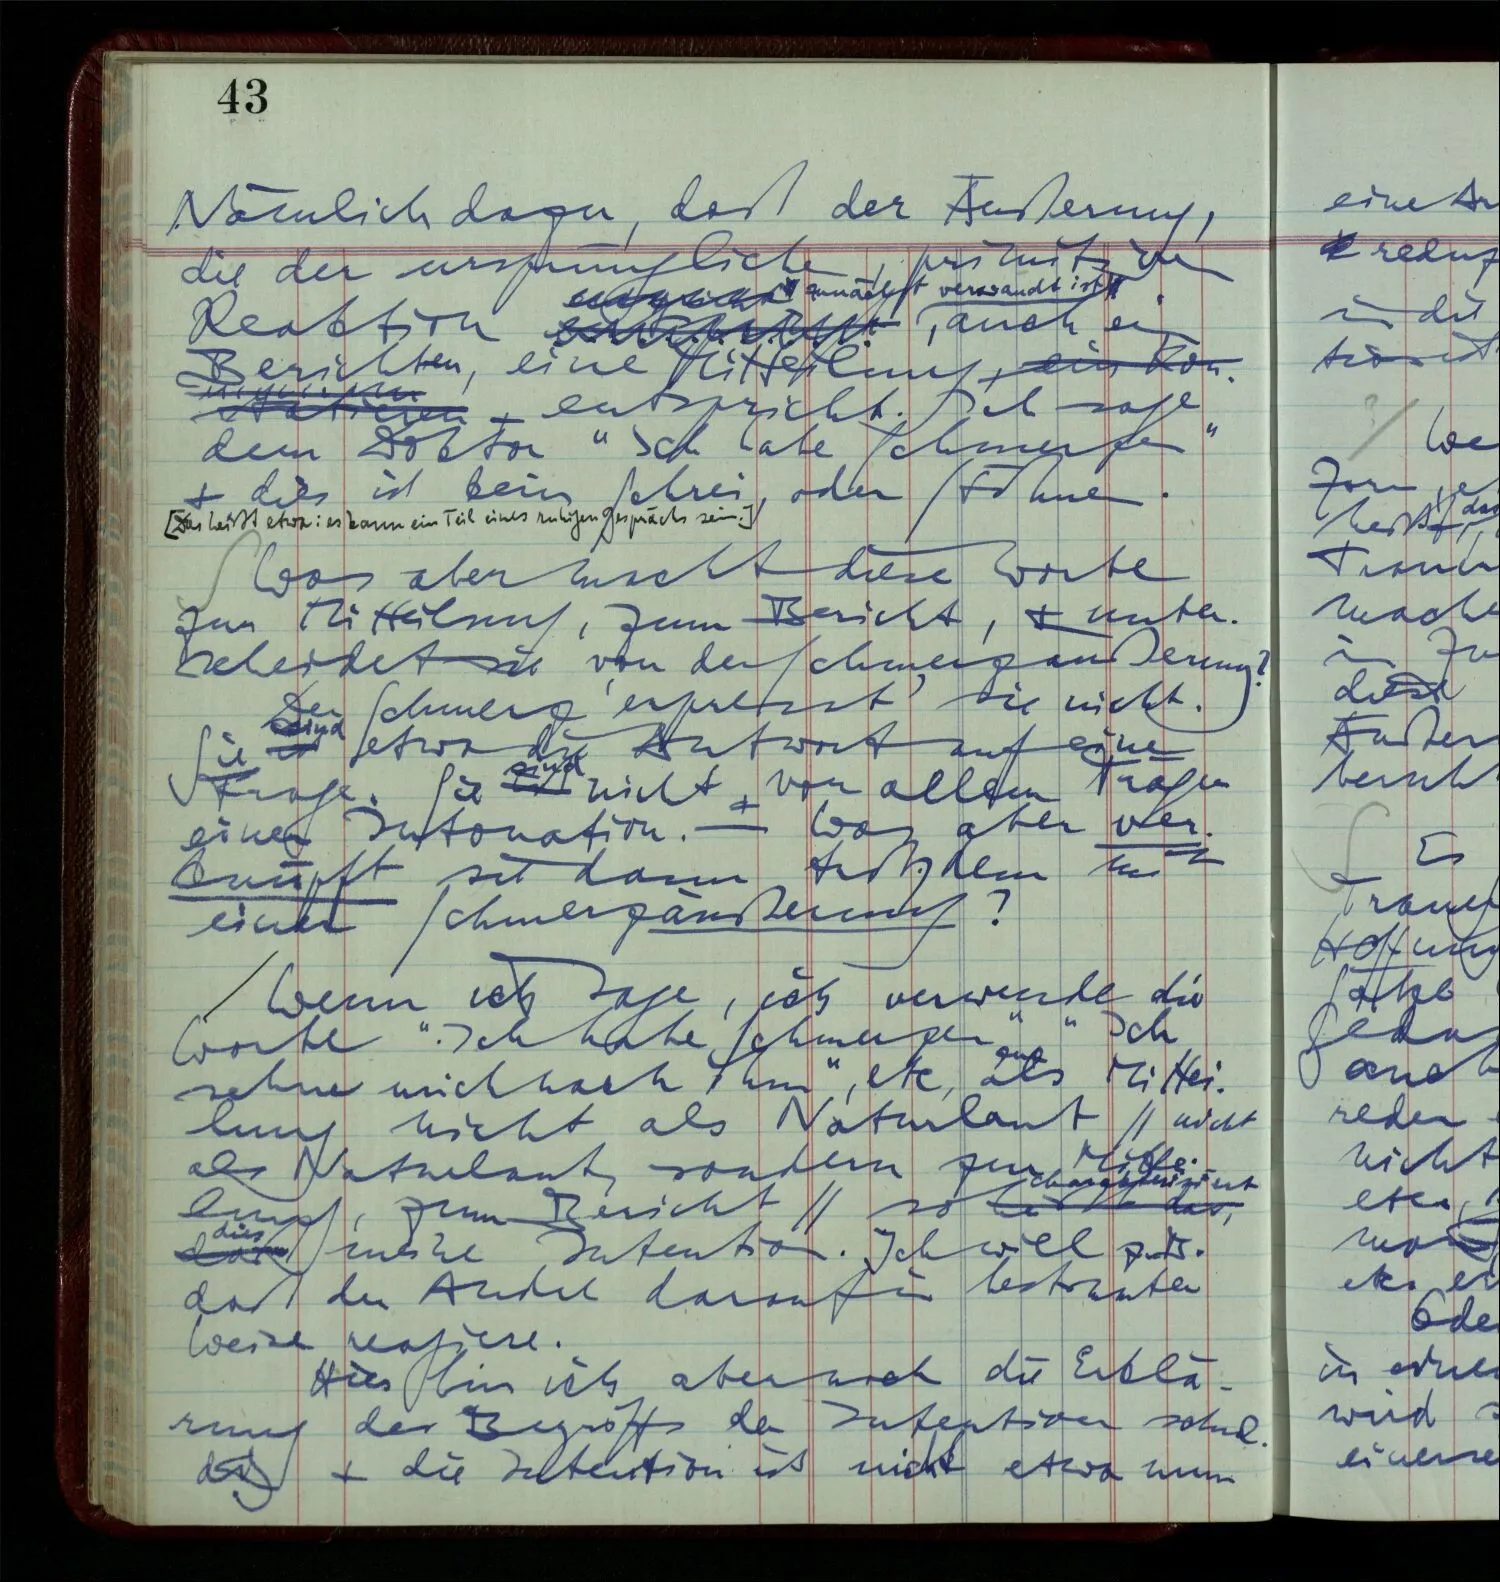 43
Nämlich dazu, daß der Äußerung,
die der ursprünglichen, primitiven
zunächst verwandt ist
Reaktion , auch ein
Berichten, eine Mitteilung, ein Kon-
statieren entspricht. Ich sage
dem Doktor "Ich habe Schmerzen"
+ dies ist kein Schrei, oder Stöhnen.
[Das heißt etwa: es kann ein Teil eines ruhigen Gesprächs sein.]
Was aber macht diese Worte
zur Mitteilung, zum Bericht, + unter-
scheidet sie von der Schmerzäußerung?
Der Schmerz 'erpresst' sie nicht.
sind
Sie etwa die Antwort auf eine
sind
Frage. Sie nicht + vor allem Träger
einer Intonation. — Was aber ver-
knüpft sie dann trotzdem mit
einer Schmerzäußerung?
Wenn ich sage, ich verwende die
Worte "Ich habe Schmerzen" "Ich
sehne mich nach ihm", etc, als Mittei-
lung nicht als Naturlaut // nicht
als Naturlaut, sondern zur Mittei-
charakterisiert
lung, zum Bericht // so heißt das,
dies
meine Intention. Ich will z.B.
daß der Andre darauf in bestimmter
Weise reagiere.
Hier bin ich aber noch die Erklä-
rung des Begriffs der Intention schul-
dig + die Intention ist nicht etwa nun
eine
in die
We
Zorn,
heißt,
mache
in
diese
Es
Sätze
auch
reden
nicht
etc,
etc.
Ode
in einer
wird